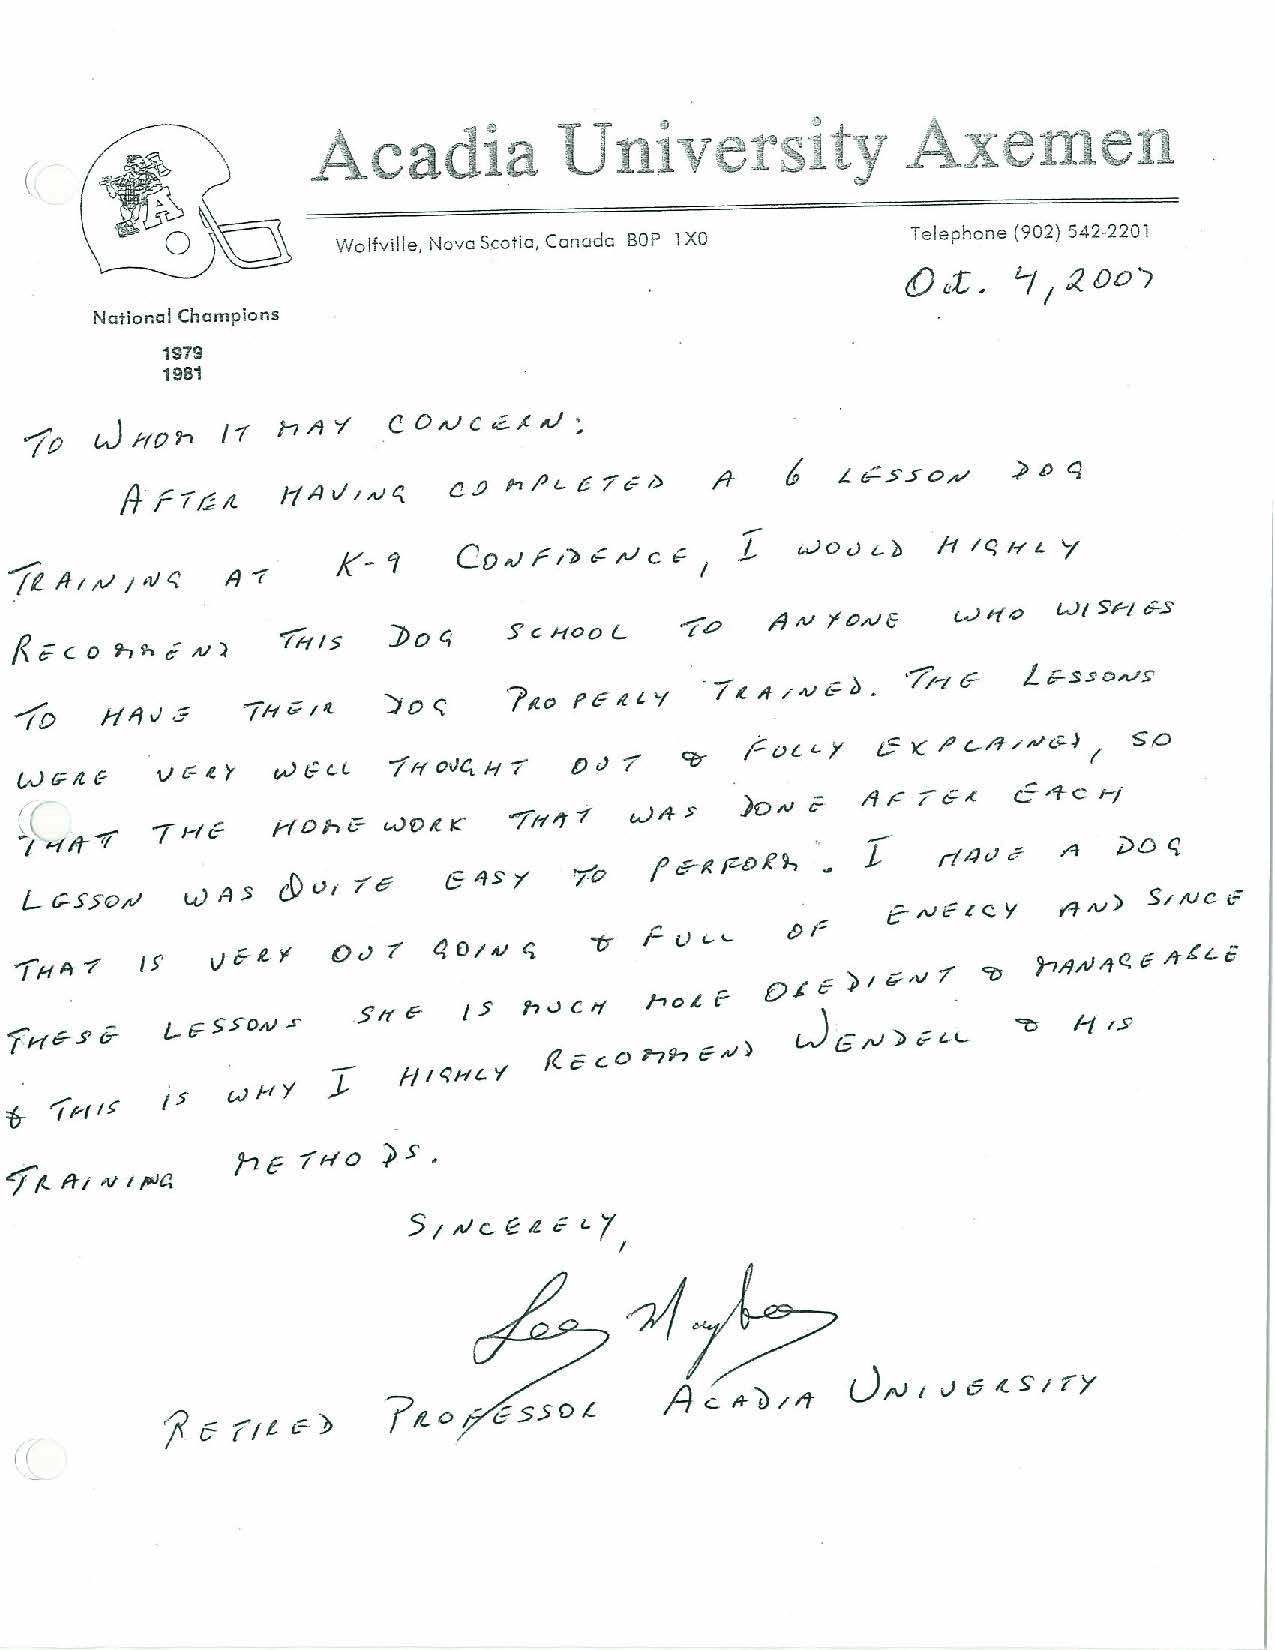 Acadia University Axemen
Wolfville, Nova Scotia, Canada B0P 1X0
Telephone (902) 542-2201
Oct. 4, 2007
National Champions
1979
1981
TO WHOM IT MAY CONCERN:
AFTER HAVING COMPLETED A 6 LESSON DOG
TRAINING AT K-9 CONFIDENCE, I WOULD HIGHLY
RECOMMEND THIS DOG SCHOOL TO ANYONE WHO WISHES
TO HAVE THEIR DOG PROPERLY TRAINED. THE LESSONS
WERE VERY WELL THOUGHT OUT & FULLY EXPLAINED, SO
THAT THE HOMEWORK THAT WAS DONE AFTER EACH
LESSON WAS QUITE EASY TO PERFORM. I HAVE A DOG
THAT IS VERY OUT GOING & FULL OF ENERGY AND SINCE
THESE LESSONS SHE IS MUCH MORE OBEDIENT & MANAGEABLE
& THIS IS WHY I HIGHLY RECOMMEND WENDELL & HIS
TRAINING METHODS.
SINCERELY,
RETIRED PROFESSOR ACADIA UNIVERSITY